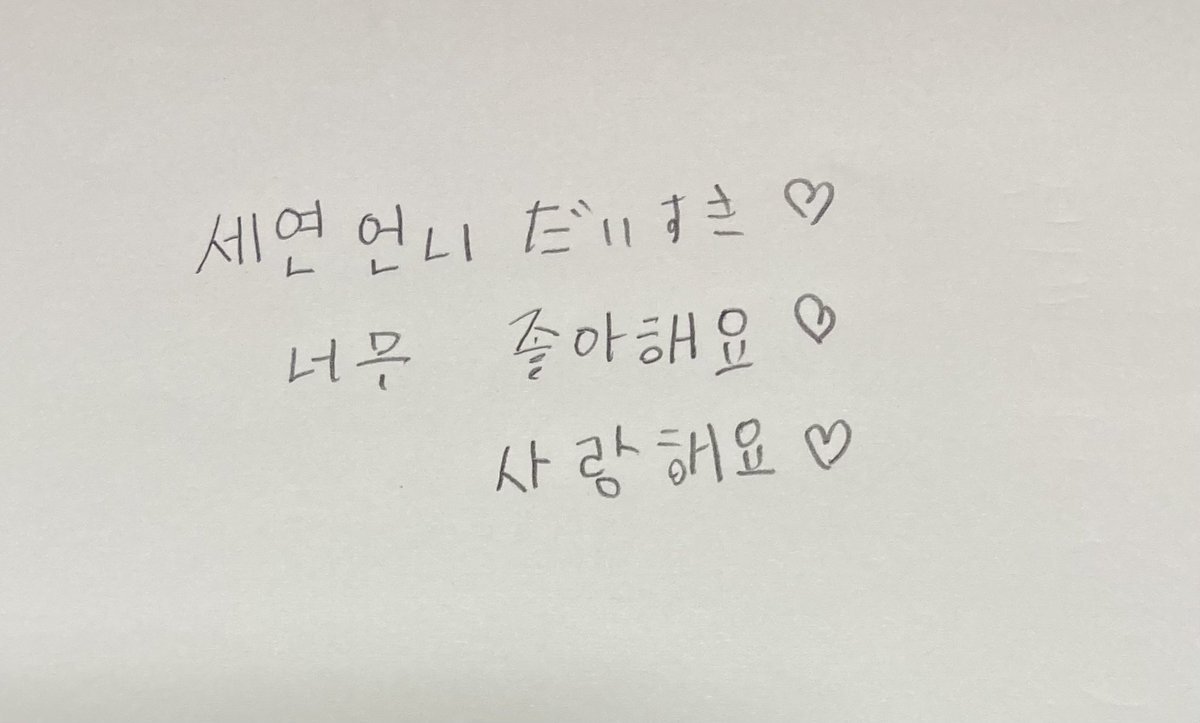 세연언니 だいすき ♡
너무 좋아해요 ♡
사랑해요 ♡